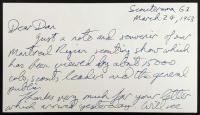 Scouterama 63
March 29, 1963
Dear Dan
Just a note and souvenir of our
Montreal Region scouting show which
has been viewed by about 15000
cubs, scouts, leaders and the general
public.
Thanks very much for your letter
which arrived yesterday. Will see